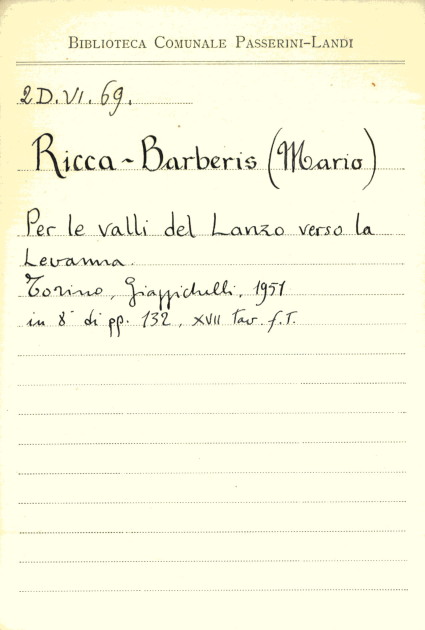 BIBLIOTECA COMUNALE PASSERINI-LANDI
2D.VI.69.
Ricca-Barberis (Mario)
Per le valli del Lanzo verso la
Levanna.
Torino, Giappichelli, 1951
in 8° di pp. 132, XVII tav. f.T.